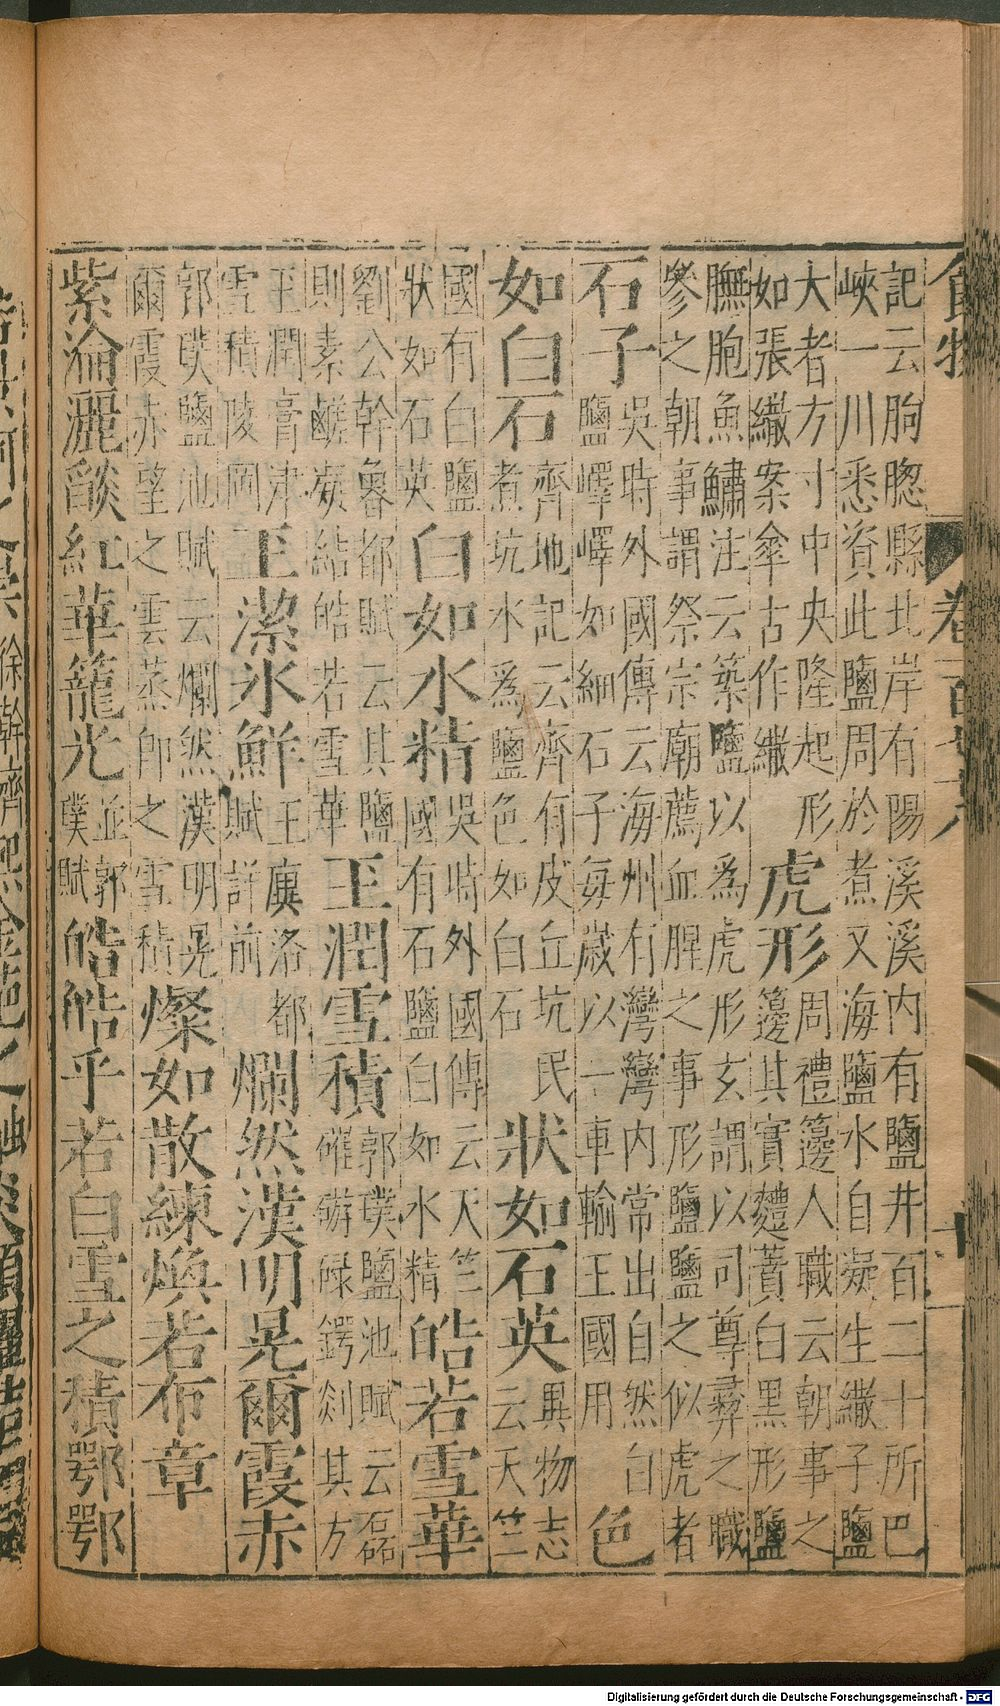 食物
十
記云朐䏰縣北岸有陽溪溪内有鹽井百二十所巴
峽一川悉資此鹽周於煮又海鹽水自凝生繖子鹽
大者方寸中央隆起形
如張繖案傘古作繖
虎形
周禮籩人職云朝事之
籩其實麷蕡白黑形鹽
膴胞魚鱐注云築鹽以為虎形玄謂以司尊彝之職
參之朝事謂祭宗廟薦血腥之事形鹽鹽之似虎者
石子
吳時外國傳云海州有灣灣内常出自然白
鹽嶧嶧如細石子每歲以一車輸王國用
色
如白石
齊地記云齊有皮丘坑民
煮坑水為鹽色如白石
狀如石英
異物志
云天竺
國有白鹽
狀如石英
白如水精
吳時外國傳云天竺
國有石鹽白如水精
皓若雪華
劉公幹魯都賦云其鹽
則素鹺凝結皓若雪華
玉潤雪積
郭璞鹽池賦云磊
磪碌鍔剡其方
玉潤膏津
雪積陵岡
玉潔冰鮮
王廙洛都
賦詳前
爛然漢明晃爾霞赤
郭璞鹽池賦云爛然漢明晃
爾霞赤望之雲蒸即之雪積
燦如散練煥若布章
紫淪灑燄紅華籠光
並郭
璞賦
皓皓乎若白雪之積鄂鄂
Digitalisierung gefördert durch die Deutsche Forschungsgemeinschaft - DFG